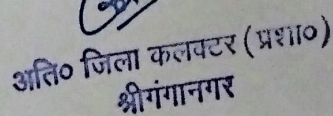 अति० जिला कलक्टर (प्रशा०)
श्रीगंगानगर